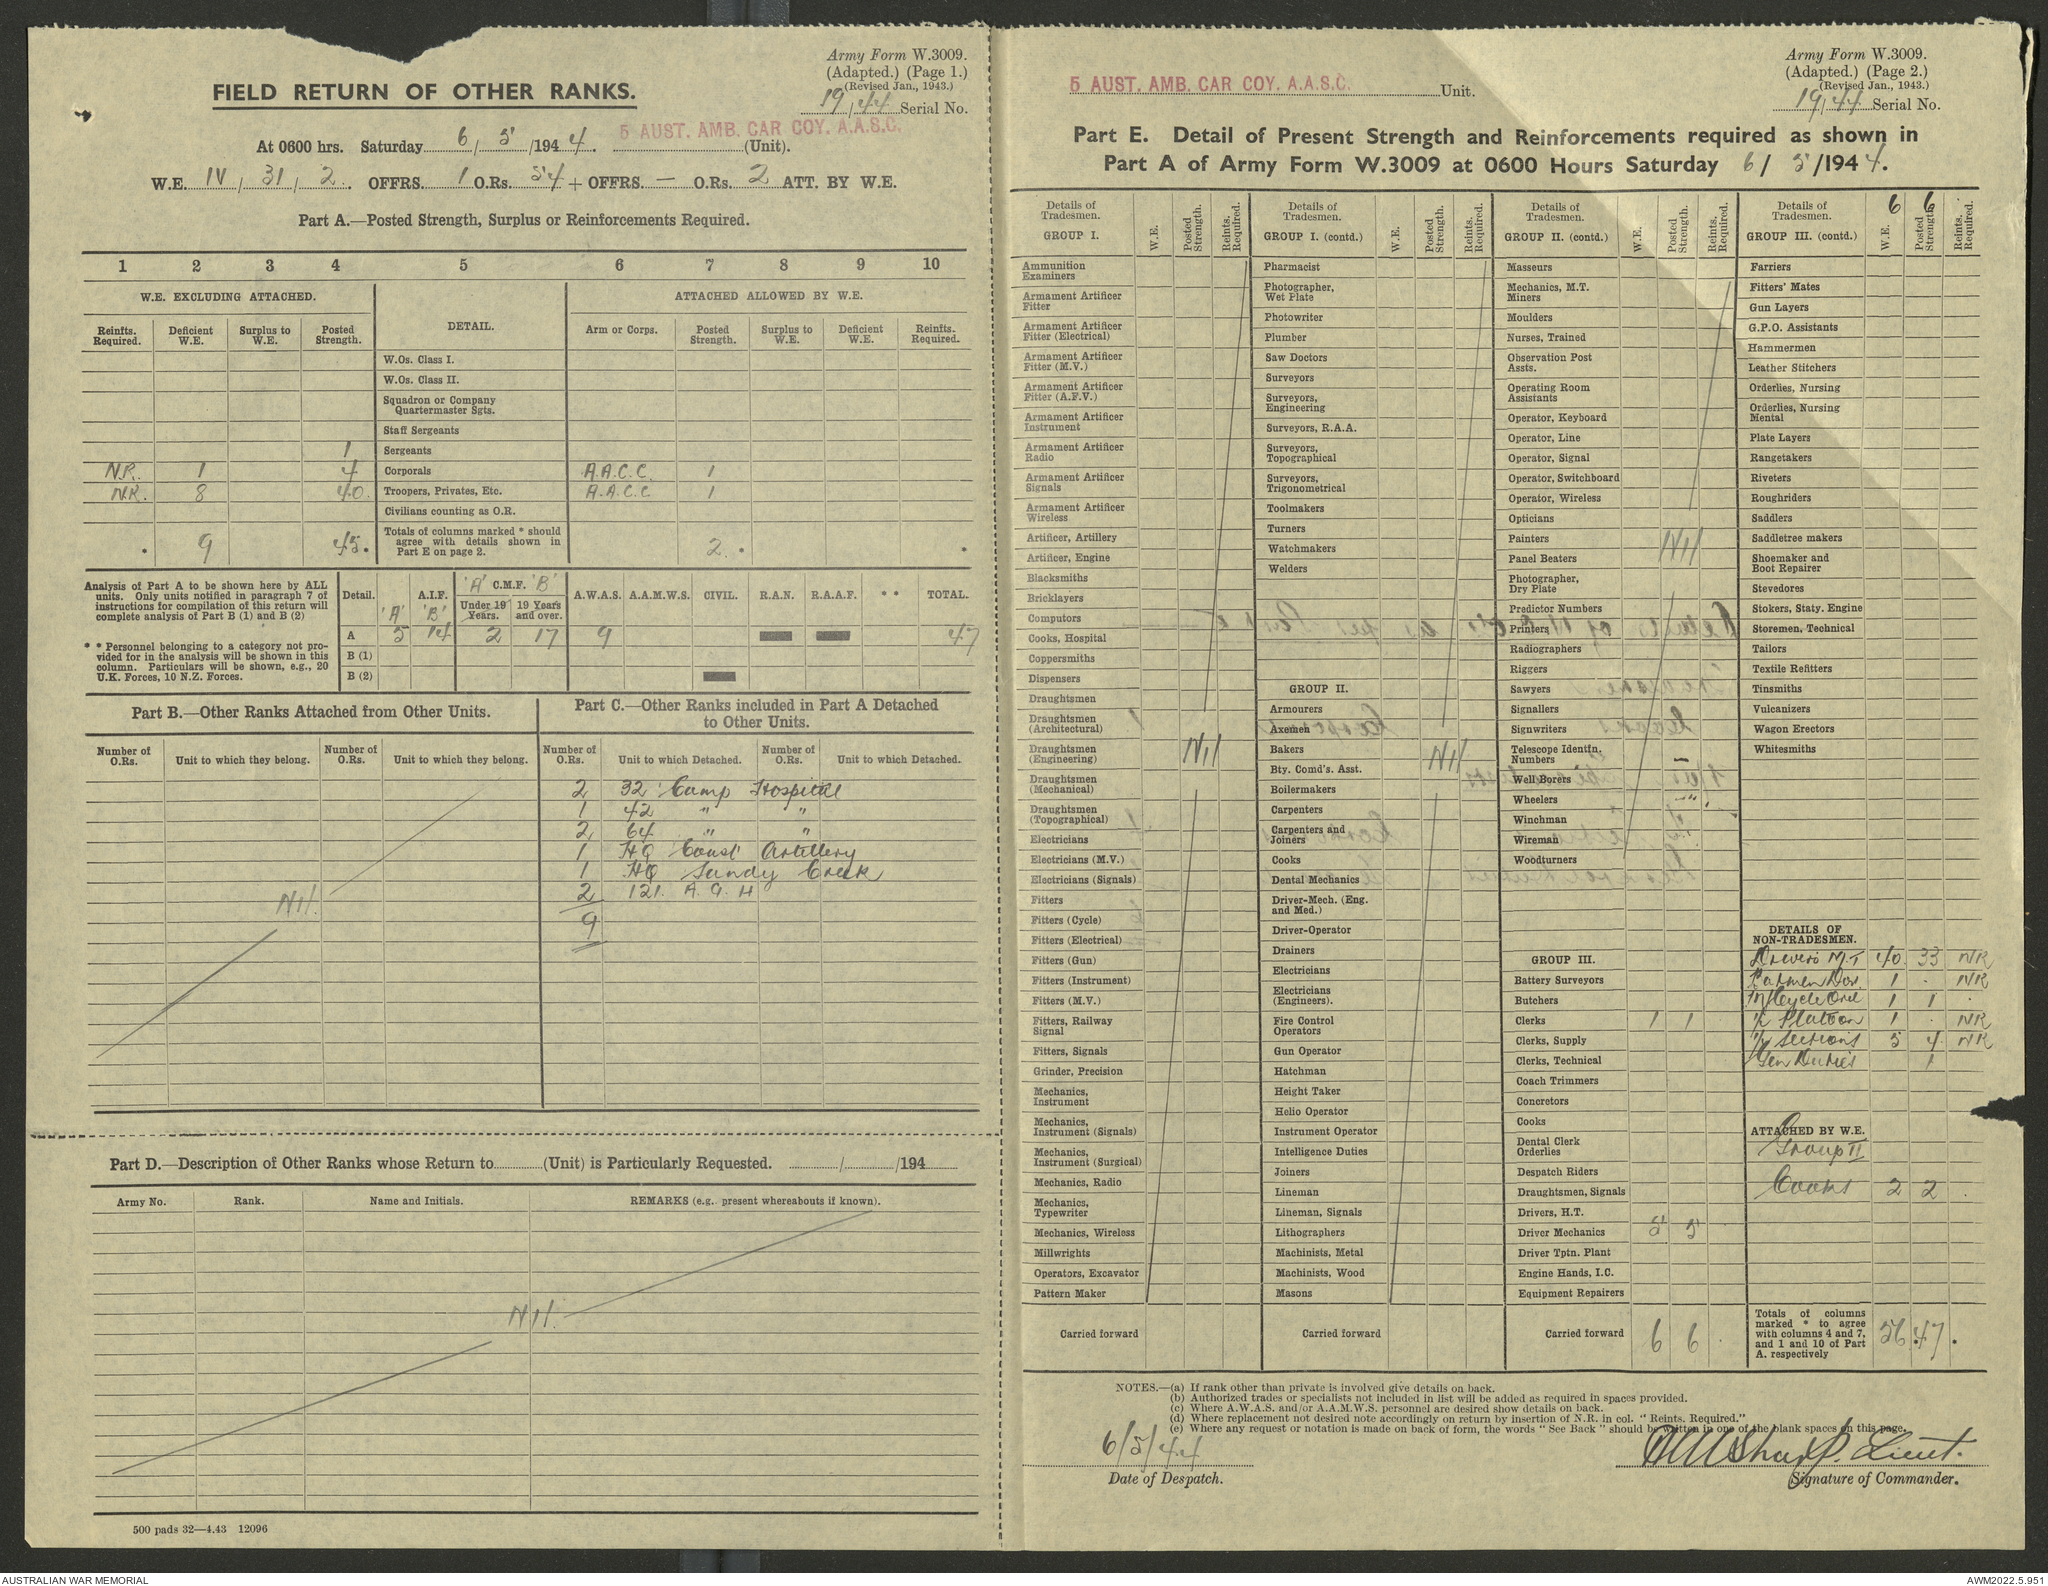 Army Form W.3009.
(Adapted.) (Page 1.)
(Revised Jan., 1943.)
19/44 Serial No.
FIELD RETURN OF OTHER RANKS.
5 AUST. AMB. CAR COY. A.A.S.C.
At 0600 hrs. Saturday 6/5/1944. (Unit).
W.E. IV/31/2. OFFRS. 1 O.Rs. 54 + OFFRS. — O.Rs. 2 ATT. BY W.E.
Part A.—Posted Strength, Surplus or Reinforcements Required.
1 2 3 4 5 6 7 8 9 10
W.E. EXCLUDING ATTACHED. DETAIL. ATTACHED ALLOWED BY W.E.
Reinfts. Required. Deficient W.E. Surplus to W.E. Posted Strength. Arm or Corps. Posted Strength. Surplus to W.E. Deficient W.E. Reinfts. Required.
W.Os. Class I.
W.Os. Class II.
Squadron or Company Quartermaster Sgts.
Staff Sergeants
1 Sergeants
N.R. 1 4 Corporals A.A.C.C. 1
N.R. 8 40. Troopers, Privates, Etc. A.A.C.C 1
Civilians counting as O.R.
* 9 45* Totals of columns marked * should agree with details shown in Part E on page 2. 2 * *
Analysis of Part A to be shown here by ALL units. Only units notified in paragraph 7 of instructions for compilation of this return will complete analysis of Part B (1) and B (2)
* * Personnel belonging to a category not provided for in the analysis will be shown in this column. Particulars will be shown, e.g., 20 U.K. Forces, 10 N.Z. Forces.
Detail. 'A' A.I.F. 'B' 'A' C.M.F. 'B' Under 19 Years. 19 Years and over. A.W.A.S. A.A.M.W.S. CIVIL. R.A.N. R.A.A.F. * * TOTAL.
A 5 14 2 17 9 47
B (1)
B (2)
Part B.—Other Ranks Attached from Other Units.
Number of O.Rs. Unit to which they belong. Number of O.Rs. Unit to which they belong.
Nil.
Part C.—Other Ranks included in Part A Detached to Other Units.
Number of O.Rs. Unit to which Detached. Number of O.Rs. Unit to which Detached.
2 32 Camp Hospital
1 42 " "
2 64 " "
1 HQ Coast Artillery
1 HQ Sandy Creek
2 121. A G H
9
Part D.—Description of Other Ranks whose Return to (Unit) is Particularly Requested. / /194
Army No. Rank. Name and Initials. REMARKS (e.g. present whereabouts if known).
Nil.
500 pads 32—4.43 12096
Army Form W.3009.
(Adapted.) (Page 2.)
(Revised Jan., 1943.)
19/44 Serial No.
5 AUST. AMB. CAR COY. A.A.S.C. Unit.
Part E. Detail of Present Strength and Reinforcements required as shown in
Part A of Army Form W.3009 at 0600 Hours Saturday 6/5/1944.
Details of Tradesmen. GROUP I. W.E. Posted Strength. Reints. Required.
Ammunition Examiners
Armament Artificer Fitter
Armament Artificer Fitter (Electrical)
Armament Artificer Fitter (M.V.)
Armament Artificer Fitter (A.F.V.)
Armament Artificer Instrument
Armament Artificer Radio
Armament Artificer Signals
Armament Artificer Wireless
Artificer, Artillery
Artificer, Engine
Blacksmiths
Bricklayers
Computors
Cooks, Hospital
Coppersmiths
Dispensers
Draughtsmen
Draughtsmen (Architectural)
Draughtsmen (Engineering) Nil
Draughtsmen (Mechanical)
Draughtsmen (Topographical)
Electricians
Electricians (M.V.)
Electricians (Signals)
Fitters
Fitters (Cycle)
Fitters (Electrical)
Fitters (Gun)
Fitters (Instrument)
Fitters (M.V.)
Fitters, Railway Signal
Fitters, Signals
Grinder, Precision
Mechanics, Instrument
Mechanics, Instrument (Signals)
Mechanics, Instrument (Surgical)
Mechanics, Radio
Mechanics, Typewriter
Mechanics, Wireless
Millwrights
Operators, Excavator
Pattern Maker
Carried forward
Details of Tradesmen. GROUP I. (contd.) W.E. Posted Strength. Reints. Required.
Pharmacist
Photographer, Wet Plate
Photowriter
Plumber
Saw Doctors
Surveyors
Surveyors, Engineering
Surveyors, R.A.A.
Surveyors, Topographical
Surveyors, Trigonometrical
Toolmakers
Turners
Watchmakers
Welders
GROUP II.
Armourers
Axemen
Bakers Nil
Bty. Comd's. Asst.
Boilermakers
Carpenters
Carpenters and Joiners
Cooks
Dental Mechanics
Driver-Mech. (Eng. and Med.)
Driver-Operator
Drainers
Electricians
Electricians (Engineers).
Fire Control Operators
Gun Operator
Hatchman
Height Taker
Helio Operator
Instrument Operator
Intelligence Duties
Joiners
Lineman
Lineman, Signals
Lithographers
Machinists, Metal
Machinists, Wood
Masons
Carried forward
Details of Tradesmen. GROUP II. (contd.) W.E. Posted Strength. Reints. Required.
Masseurs
Mechanics, M.T.
Miners
Moulders
Nurses, Trained
Observation Post Assts.
Operating Room Assistants
Operator, Keyboard
Operator, Line
Operator, Signal
Operator, Switchboard
Operator, Wireless
Opticians
Painters Nil
Panel Beaters
Photographer, Dry Plate
Predictor Numbers
Printers
Radiographers
Riggers
Sawyers
Signallers
Signwriters
Telescope Identfn. Numbers
Well Borers
Wheelers
Winchman
Wireman
Woodturners
GROUP III.
Battery Surveyors
Butchers
Clerks 1 1
Clerks, Supply
Clerks, Technical
Coach Trimmers
Concretors
Cooks
Dental Clerk Orderlies
Despatch Riders
Draughtsmen, Signals
Drivers, H.T.
Driver Mechanics 5 5
Driver Tptn. Plant
Engine Hands, I.C.
Equipment Repairers
Carried forward 6 6
Details of Tradesmen. GROUP III. (contd.) W.E. 6 Posted Strength. 6 Reints. Required.
Farriers
Fitters' Mates
Gun Layers
G.P.O. Assistants
Hammermen
Leather Stitchers
Orderlies, Nursing
Orderlies, Nursing Mental
Plate Layers
Rangetakers
Riveters
Roughriders
Saddlers
Saddletree makers
Shoemaker and Boot Repairer
Stevedores
Stokers, Staty. Engine
Storemen, Technical
Tailors
Textile Refitters
Tinsmiths
Vulcanizers
Wagon Erectors
Whitesmiths
DETAILS OF NON-TRADESMEN.
Drivers M.T 40. 33 NR
Batmen Dvr. 1 . NR
M/Cycle Ord 1 1 .
i/c Platoon 1 . NR
i/c Sections 5 4 NR
Gen Duties 1
ATTACHED BY W.E.
Group II
Cooks 2 2 .
Totals of columns marked * to agree with columns 4 and 7, and 1 and 10 of Part A. respectively 56 *47 *
NOTES.—(a) If rank other than private is involved give details on back.
(b) Authorized trades or specialists not included in list will be added as required in spaces provided.
(c) Where A.W.A.S. and/or A.A.M.W.S. personnel are desired show details on back.
(d) Where replacement not desired note accordingly on return by insertion of N.R. in col. "Reints. Required."
(e) Where any request or notation is made on back of form, the words "See Back" should be written in one of the blank spaces on this page.
6/5/44
Date of Despatch.
Sharp. Lieut.
Signature of Commander.
AUSTRALIAN WAR MEMORIAL
AWM2022.5.951